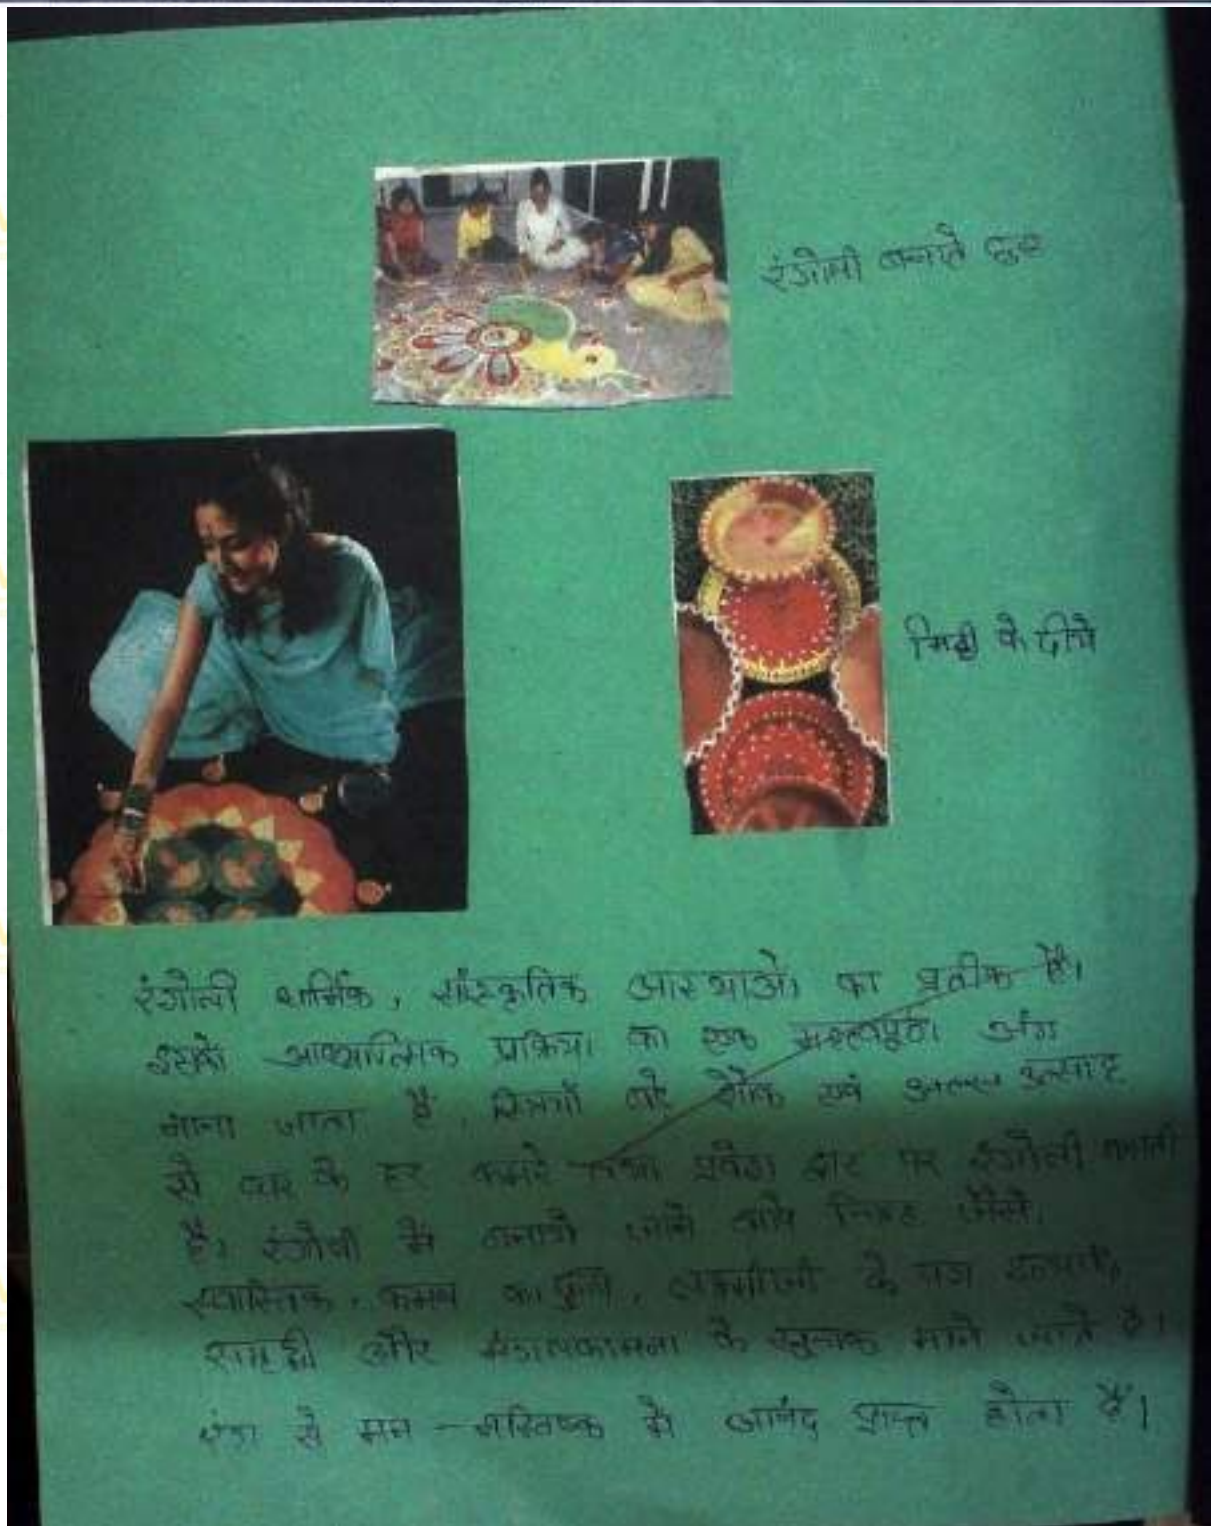 रंगोली बनाते हुए
मिट्टी के दीये
रंगोली धार्मिक, साँस्कृतिक आस्थाओं का प्रतीक है।
इसको आध्यात्मिक प्रक्रिया का एक महत्वपूर्ण अंग
माना जाता है, स्त्रियाँ बड़े शौक एवं उत्साह
से घर के हर कमरे तथा प्रवेश द्वार पर रंगोली बनाती
है। रंगोली में बनाये जाने वाले चिन्ह जैसे,
स्वास्तिक, कमल का फूल, लक्ष्मीजी के पग इत्यादि,
समृद्धी और मंगलकामना के सुचक माने जाते है।
रंग से मन -मस्तिष्क में आनंद प्राप्त होता है।